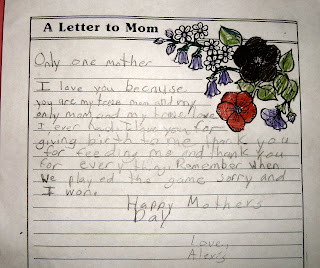 A Letter to Mom
Only one mother
I love you because
you are my trese mom and my
only mom and my trese love
I ever had I love you for
giving birth to me thank you
for feeding me and thank you
for every thing. Remember when
We played the game sorry and
I won.
Happy Mothers
Day
Love,
Alexis